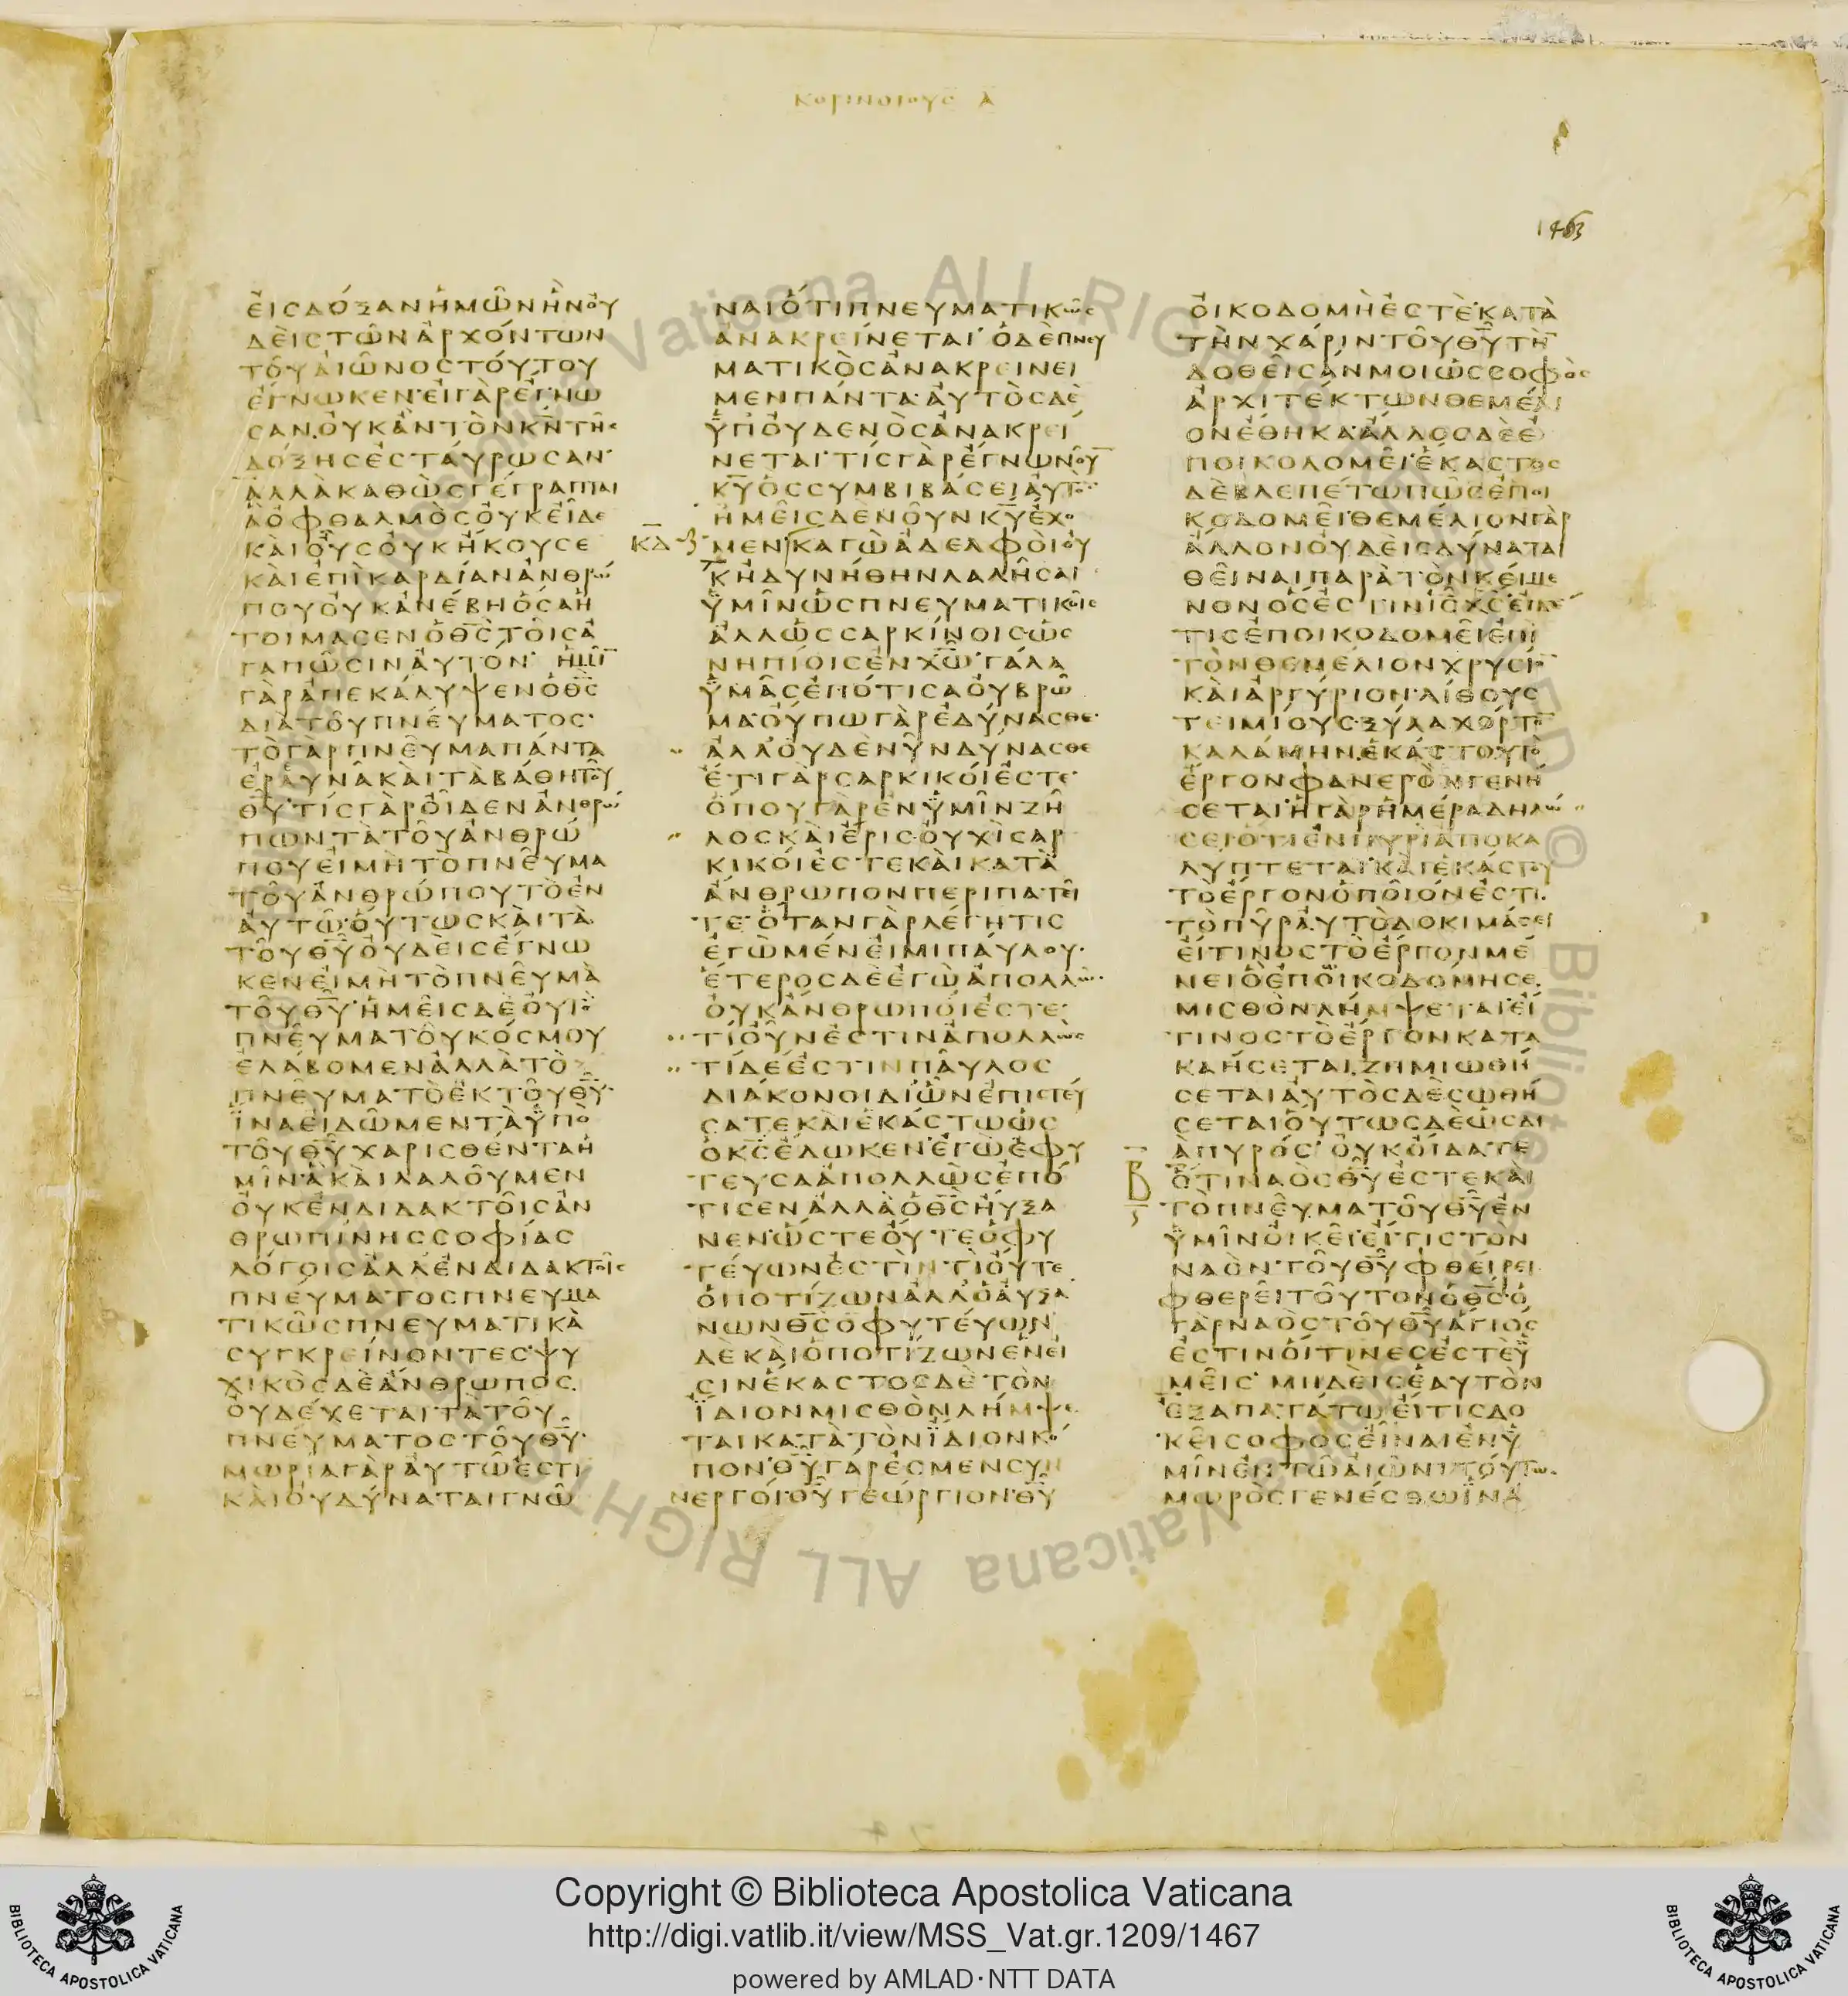 ΚΟΡΙΝΘΙΟΥΣ Α
1463
ΕΙΣΔΟΞΑΝΗΜΩΝΗΝΟΥ
ΔΕΙΣΤΩΝΑΡΧΟΝΤΩΝ
ΤΟΥΑΙΩΝΟΣΤΟΥΤΟΥ
ΕΓΝΩΚΕΝ·ΕΙΓΑΡΕΓΝΩ
ΣΑΝ.ΟΥΚΑΝΤΟΝΚΝΤΗΣ
ΔΟΞΗΣΕΣΤΑΥΡΩΣΑΝ·
ΑΛΛΑΚΑΘΩΣΓΕΓΡΑΠΤΑΙ
ΑΟΦΘΑΛΜΟΣΟΥΚΕΙΔΕ
ΚΑΙΟΥΣΟΥΚΗΚΟΥΣΕ
ΚΑΙΕΠΙΚΑΡΔΙΑΝΑΝΘΡΩ
ΠΟΥΟΥΚΑΝΕΒΗΟΣΑΗ
ΤΟΙΜΑΣΕΝΟΘΣΤΟΙΣΑ
ΓΑΠΩΣΙΝΑΥΤΟΝ· ΗΜΙ̅
ΓΑΡΑΠΕΚΑΛΥΨΕΝΟΘΣ
ΔΙΑΤΟΥΠΝΕΥΜΑΤΟΣ·
ΤΟΓΑΡΠΝΕΥΜΑΠΑΝΤΑ
ΕΡΑΥΝΑΚΑΙΤΑΒΑΘΗΤΟΥ
ΘΥ·ΤΙΣΓΑΡΟΙΔΕΝΑΝΘΡΩ
ΠΩΝΤΑΤΟΥΑΝΘΡΩ
ΠΟΥΕΙΜΗΤΟΠΝΕΥΜΑ
ΤΟΥΑΝΘΡΩΠΟΥΤΟΕΝ
ΑΥΤΩ·ΟΥΤΩΣΚΑΙΤΑ
ΤΟΥΘΥΟΥΔΕΙΣΕΓΝΩ
ΚΕΝΕΙΜΗΤΟΠΝΕΥΜΑ
ΤΟΥΘΥ·ΗΜΕΙΣΔΕΟΥΤΟ
ΠΝΕΥΜΑΤΟΥΚΟΣΜΟΥ
ΕΛΑΒΟΜΕΝΑΛΛΑΤΟ
ΠΝΕΥΜΑΤΟΕΚΤΟΥΘΥ·
ΙΝΑΕΙΔΩΜΕΝΤΑΥΠΟ
ΤΟΥΘΥΧΑΡΙΣΘΕΝΤΑΗ
ΜΙΝ·ΑΚΑΙΛΑΛΟΥΜΕΝ
ΟΥΚΕΝΔΙΔΑΚΤΟΙΣΑΝ
ΘΡΩΠΙΝΗΣΣΟΦΙΑΣ
ΛΟΓΟΙΣΑΛΛΕΝΔΙΔΑΚΤΟΙΣ
ΠΝΕΥΜΑΤΟΣΠΝΕΥΜΑ
ΤΙΚΩΣΠΝΕΥΜΑΤΙΚΑ
ΣΥΓΚΡΕΙΝΟΝΤΕΣ·ΨΥ
ΧΙΚΟΣΔΕΑΝΘΡΩΠΟΣ
ΟΥΔΕΧΕΤΑΙΤΑΤΟΥ
ΠΝΕΥΜΑΤΟΣΤΟΥΘΥ·
ΜΩΡΙΑΓΑΡΑΥΤΩΕΣΤΙ
ΚΑΙΟΥΔΥΝΑΤΑΙΓΝΩ
ΝΑΙΟΤΙΠΝΕΥΜΑΤΙΚΩΣ
ΑΝΑΚΡΕΙΝΕΤΑΙ·ΟΔΕΠΝΕΥ
ΜΑΤΙΚΟΣΑΝΑΚΡΕΙΝΕΙ
ΜΕΝΠΑΝΤΑ·ΑΥΤΟΣΔΕ
ΥΠΟΥΔΕΝΟΣΑΝΑΚΡΕΙ
ΝΕΤΑΙ·ΤΙΣΓΑΡΕΓΝΩΝΟΥ̅
ΚΥΟΣΣΥΜΒΙΒΑΣΕΙΑΥΤΟ̅·
ΗΜΕΙΣΔΕΝΟΥΝΚΥΕΧΟ
ΚΔ Ζ ΜΕΝ·ΚΑΓΩΑΔΕΛΦΟΙΟΥ
ΚΗΔΥΝΗΘΗΝΛΑΛΗΣΑΙ
ΥΜΙΝΩΣΠΝΕΥΜΑΤΙΚΟΙΣ
ΑΛΛΩΣΣΑΡΚΙΝΟΙΣ·ΩΣ
ΝΗΠΙΟΙΣΕΝΧΩ·ΓΑΛΑ
ΥΜΑΣΕΠΟΤΙΣΑΟΥΒΡΩ
ΜΑ·ΟΥΠΩΓΑΡΕΔΥΝΑΣΘΕ·
ΑΛΛΟΥΔΕΝΥΝΔΥΝΑΣΘΕ
ΕΤΙΓΑΡΣΑΡΚΙΚΟΙΕΣΤΕ·
ΟΠΟΥΓΑΡΕΝΥΜΙΝΖΗ
ΛΟΣΚΑΙΕΡΙΣ·ΟΥΧΙΣΑΡ
ΚΙΚΟΙΕΣΤΕΚΑΙΚΑΤΑ
ΑΝΘΡΩΠΟΝΠΕΡΙΠΑΤΕΙ
ΤΕ·ΟΤΑΝΓΑΡΛΕΓΗΤΙΣ
ΕΓΩΜΕΝΕΙΜΙΠΑΥΛΟΥ·
ΕΤΕΡΟΣΔΕΕΓΩΑΠΟΛΛΩ·
ΟΥΚΑΝΘΡΩΠΟΙΕΣΤΕ·
ΤΙΟΥΝΕΣΤΙΝΑΠΟΛΛΩΣ
ΤΙΔΕΕΣΤΙΝΠΑΥΛΟΣ
ΔΙΑΚΟΝΟΙΔΙΩΝΕΠΙΣΤΕΥ
ΣΑΤΕΚΑΙΕΚΑΣΤΩΩΣ
ΟΚΣΕΔΩΚΕΝ·ΕΓΩΕΦΥ
ΤΕΥΣΑΑΠΟΛΛΩΣΕΠΟ
ΤΙΣΕΝΑΛΛΑΟΘΣΗΥΞΑ
ΝΕΝ·ΩΣΤΕΟΥΤΕΟΦΥ
ΤΕΥΩΝΕΣΤΙΝ·ΤΙΟΥΤΕ
ΟΠΟΤΙΖΩΝΑΛΛΟΑΥΞΑ
ΝΩΝΘΣΟΦΥΤΕΥΩΝ
ΔΕΚΑΙΟΠΟΤΙΖΩΝΕΝΕΙ
ΣΙΝΕΚΑΣΤΟΣΔΕΤΟΝ
ΙΔΙΟΝΜΙΣΘΟΝΛΗΜΨΕ
ΤΑΙΚΑΤΑΤΟΝΙΔΙΟΝΚΟ
ΠΟΝ·ΘΥΓΑΡΕΣΜΕΝΣΥΝ
ΝΕΡΓΟΙ·ΘΥΓΕΩΡΓΙΟΝ·ΘΥ
ΟΙΚΟΔΟΜΗΕΣΤΕ·ΚΑΤΑ
ΤΗΝΧΑΡΙΝΤΟΥΘΥΤΗ̅
ΔΟΘΕΙΣΑΝΜΟΙΩΣΣΟΦΟΣ
ΑΡΧΙΤΕΚΤΩΝΘΕΜΕΛΙ
ΟΝΕΘΗΚΑ·ΑΛΛΟΣΔΕΕ
ΠΟΙΚΟΔΟΜΕΙ·ΕΚΑΣΤΟΣ
ΔΕΒΛΕΠΕΤΩΠΩΣΕΠΟΙ
ΚΟΔΟΜΕΙ·ΘΕΜΕΛΙΟΝΓΑΡ
ΑΛΛΟΝΟΥΔΕΙΣΔΥΝΑΤΑΙ
ΘΕΙΝΑΙΠΑΡΑΤΟΝΚΕΙΜΕ
ΝΟΝΟΣΕΣΤΙΝΙΣΧΣ·ΕΙΔΕ
ΤΙΣΕΠΟΙΚΟΔΟΜΕΙΕΠΙ
ΤΟΝΘΕΜΕΛΙΟΝΧΡΥΣΙΟ̅
ΚΑΙΑΡΓΥΡΙΟΝ·ΛΙΘΟΥΣ
ΤΕΙΜΙΟΥΣ·ΞΥΛΑΧΟΡΤΟ̅
ΚΑΛΑΜΗΝ.ΕΚΑΣΤΟΥΤΟ
ΕΡΓΟΝΦΑΝΕΡΟΝΓΕΝΗ
ΣΕΤΑΙ·ΗΓΑΡΗΜΕΡΑΔΗΛΩ
ΣΕΙΟΤΙΕΝΠΥΡΙΑΠΟΚΑ
ΛΥΠΤΕΤΑΙ·ΚΑΙΕΚΑΣΤΟΥ
ΤΟΕΡΓΟΝΟΠΟΙΟΝΕΣΤΙ.
ΤΟΠΥΡΑΥΤΟΔΟΚΙΜΑΣΕΙ
ΕΙΤΙΝΟΣΤΟΕΡΓΟΝΜΕ
ΝΕΙΟΕΠΟΙΚΟΔΟΜΗΣΕ.
ΜΙΣΘΟΝΛΗΜΨΕΤΑΙ·ΕΙ
ΤΙΝΟΣΤΟΕΡΓΟΝΚΑΤΑ
ΚΑΗΣΕΤΑΙ.ΖΗΜΙΩΘΗ
ΣΕΤΑΙΑΥΤΟΣΔΕΣΩΘΗ
ΣΕΤΑΙΟΥΤΩΣΔΕΩΣΔΙ
ΑΠΥΡΟΣ· ΟΥΚΟΙΔΑΤΕ
Β ΟΤΙΝΑΟΣΘΥΕΣΤΕΚΑΙ
ΤΟΠΝΕΥΜΑΤΟΥΘΥΕΝ
ΥΜΙΝΟΙΚΕΙ·ΕΙΤΙΣΤΟΝ
ΝΑΟΝΤΟΥΘΥΦΘΕΙΡΕΙ
ΦΘΕΡΕΙΤΟΥΤΟΝΟΘΣ·Ο
ΓΑΡΝΑΟΣΤΟΥΘΥΑΓΙΟΣ
ΕΣΤΙΝΟΙΤΙΝΕΣΕΣΤΕΥ
ΜΕΙΣ· ΜΗΔΕΙΣΕΑΥΤΟΝ
ΕΞΑΠΑΤΑΤΩΕΙΤΙΣΔΟ
ΚΕΙΣΟΦΟΣΕΙΝΑΙΕΝΥ
ΜΙΝΕΝΤΩΑΙΩΝΙΤΟΥΤΩ
ΜΩΡΟΣΓΕΝΕΣΘΩΙΝΑ
Copyright © Biblioteca Apostolica Vaticana
http://digi.vatlib.it/view/MSS_Vat.gr.1209/1467
powered by AMLAD·NTT DATA
BIBLIOTECA APOSTOLICA VATICANA
BIBLIOTECA APOSTOLICA VATICANA